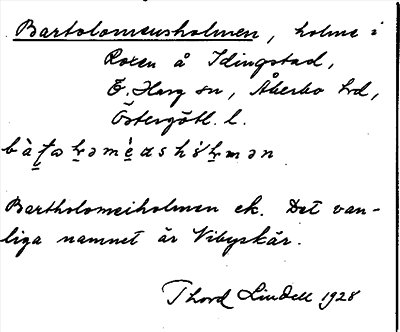 Bartolomeusholmen, holme i
Roxen å Idingstad,
Ö. Harg sn, Åkerbo hd,
Östergötl. l.
Bartholomeiholmen ek. Det van-
liga namnet är Vibyskär.
Thord Lindell 1928